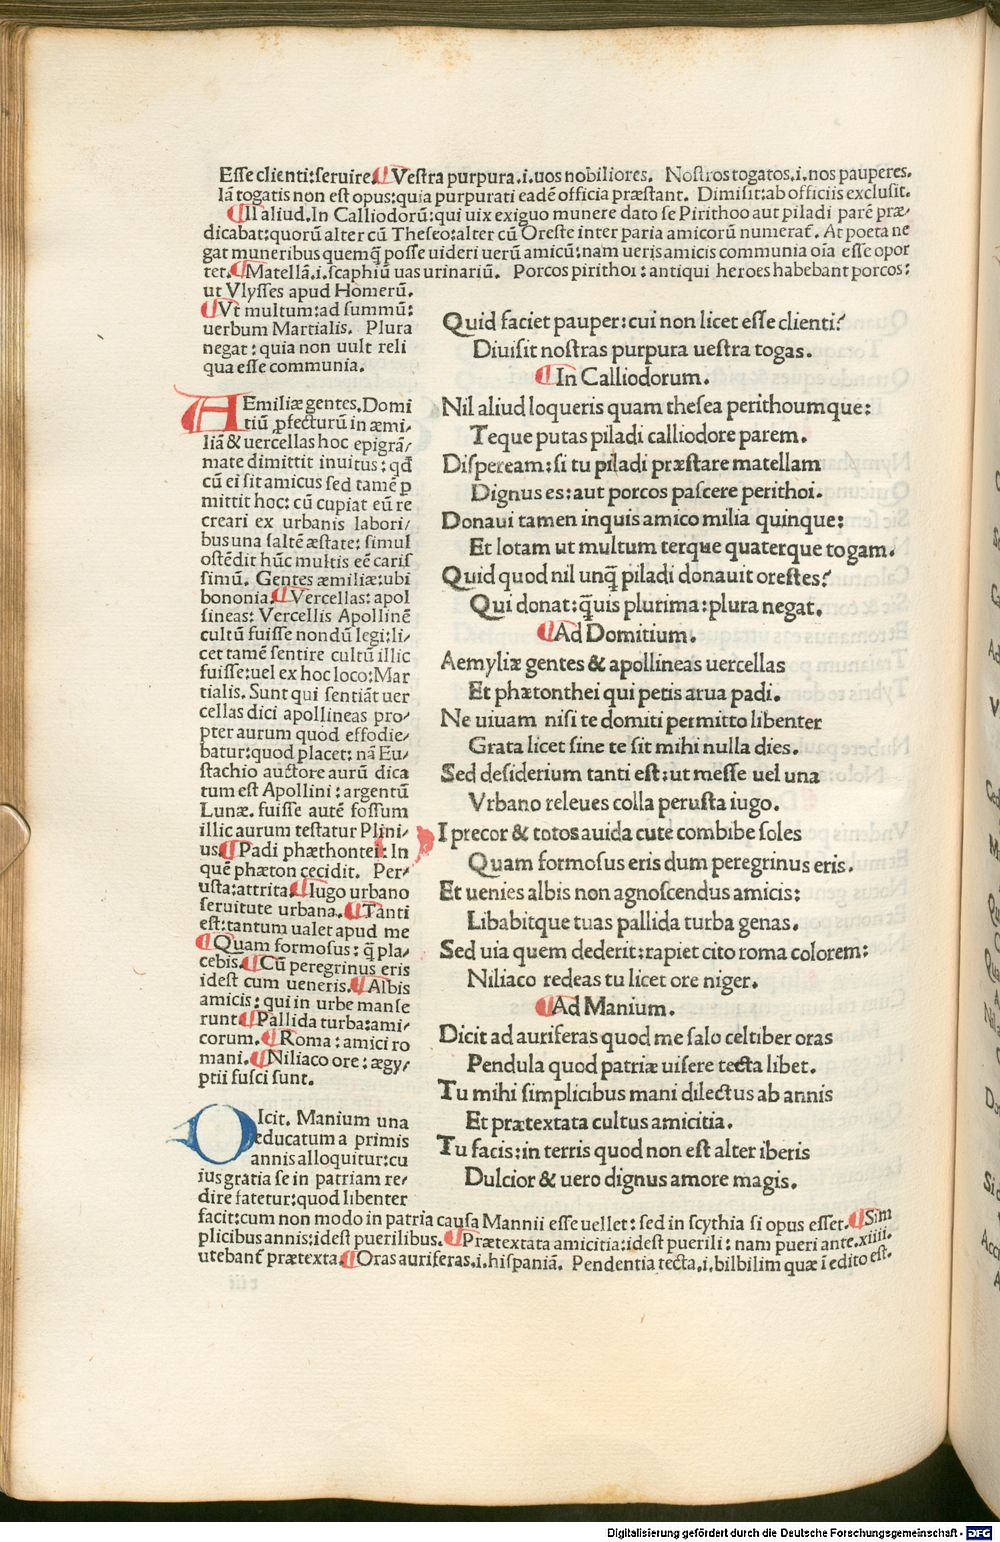 Eſſe clienti:ſeruire.¶Veſtra purpura.i.uos nobiliores. Noſtros togatos.i.nos pauperes.
Iā togatis non eſt opus:quia purpurati eadē officia præſtant. Dimiſit:ab officiis excluſit.
¶Il aliud.In Calliodorū:qui uix exiguo munere dato ſe Pirithoo aut piladi parē præ-
dicabat:quorū alter cū Theſeo:alter cū Oreſte inter paria amicorū numerat̄. At poeta ne
gat muneribus quemq̄ poſſe uideri uerū amicū:nam ueris amicis communia oīa eſſe opor
tet.¶Matellā.i.ſcaphiū uas urinariū. Porcos pirithoi:antiqui heroes habebant porcos:
ut Vlyſſes apud Homerū.
¶Vt multum:ad ſummū:
uerbum Martialis. Plura
negat:quia non uult reli
qua eſſe communia.
AEmiliæ gentes.Domi
tiū ꝓfecturū in æmi-
liā & uercellas hoc epigrā-
mate dimittit inuitus:qd̄
cū ei ſit amicus ſed tamē ꝑ
mittit hoc:cū cupiat eū re
creari ex urbanis labori-
bus una ſaltē æſtate:ſimul
oſtēdit hūc multis eē cariſ
ſimū. Gentes æmiliæ:ubi
bononia.¶Vercellas:apol
lineas:Vercellis Apollinē
cultū fuiſſe nondū legi:li-
cet tamē ſentire cultū illic
fuiſſe:uel ex hoc loco:Mar
tialis.Sunt qui ſentiāt uer
cellas dici apollineas pro-
pter aurum quod effodie-
batur:quod placet:nā Eu-
ſtachio auctore aurū dica
tum eſt Apollini:argentū
Lunæ.fuiſſe autē foſſum
illic aurum teſtatur Plini-
us.¶Padi phæthontei:In
quē phæton cecidit. Per-
uſta:attrita.¶Iugo urbano
ſeruitute urbana.¶Tanti
eſt:tantum ualet apud me
¶Quam formoſus:q̄ pla-
cebis.¶Cū peregrinus eris
ideſt cum ueneris.¶Albis
amicis:qui in urbe manſe
runt.¶Pallida turba:ami-
corum.¶Roma:amici ro
mani.¶Niliaco ore:ægy-
ptii fuſci ſunt.
DIcit. Manium una
educatum a primis
annis alloquitur:cu
ius gratia ſe in patriam re-
dire fatetur:quod libenter
facit:cum non modo in patria cauſa Mannii eſſe uellet:ſed in ſcythia ſi opus eſſet.¶Sim
plicibus annis:ideſt puerilibus.¶Prætextata amicitia:ideſt puerili:nam pueri ante.xiiii.
utebant̄ prætexta.¶Oras auriferas.i.hiſpaniā. Pendentia tecta.i.bilbilim quæ ī edito eſt.
Quid faciet pauper:cui non licet eſſe clienti?
Diuiſit noſtras purpura ueſtra togas.
¶In Calliodorum.
Nil aliud loqueris quam theſea perithoumque:
Teque putas piladi calliodore parem.
Diſpeream:ſi tu piladi præſtare matellam
Dignus es:aut porcos paſcere perithoi.
Donaui tamen inquis amico milia quinque:
Et lotam ut multum terque quaterque togam.
Quid quod nil unq̄ piladi donauit oreſtes?
Qui donat:q̄uis plurima:plura negat.
¶Ad Domitium.
Aemyliæ gentes & apollineas uercellas
Et phætonthei qui petis arua padi.
Ne uiuam niſi te domiti permitto libenter
Grata licet ſine te ſit mihi nulla dies.
Sed deſiderium tanti eſt:ut meſſe uel una
Vrbano releues colla peruſta iugo.
I precor & totos auida cute combibe ſoles
Quam formoſus eris dum peregrinus eris.
Et uenies albis non agnoſcendus amicis:
Libabitque tuas pallida turba genas.
Sed uia quem dederit:rapiet cito roma colorem:
Niliaco redeas tu licet ore niger.
¶Ad Manium.
Dicit ad auriferas quod me ſalo celtiber oras
Pendula quod patriæ uiſere tecta libet.
Tu mihi ſimplicibus mani dilectus ab annis
Et prætextata cultus amicitia.
Tu facis:in terris quod non eſt alter iberis
Dulcior & uero dignus amore magis.
Digitalisierung gefördert durch die Deutsche Forschungsgemeinschaft - DFG